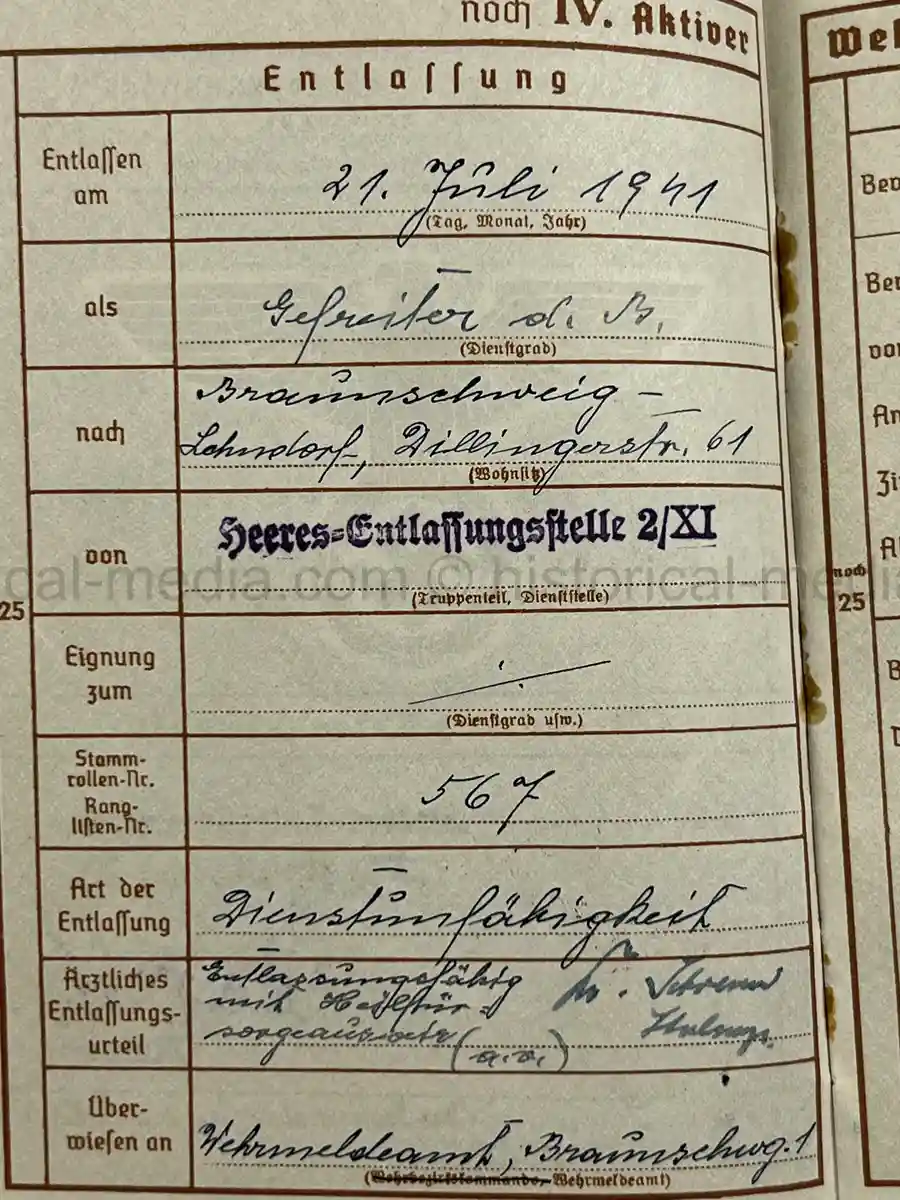 noch IV. Aktiver
Entlassung
Entlassen am
21. Juli 1941
(Tag, Monat, Jahr)
als
Gefreiter d. B.
(Dienstgrad)
nach
Braunschweig -
Lehndorf, Dillingerstr. 61
(Wohnsitz)
von
Heeres-Entlassungsstelle 2/XI
(Truppenteil, Dienststelle)
cal-media.com © historical-med
25
Eignung
zum
(Dienstgrad usw.)
Stamm-
rollen-Nr.
Rang-
listen-Nr.
567
Art der
Entlassung
Dienstunfähigkeit
Ärztliches
Entlassungs-
urteil
Entlassungsfähig
mit Heilfür-
sorgeausweis
(a.v.)
Dr.
Über-
wiesen an
Wehrmeldeamt, Braunschwg. 1
(Wehrbezirkskommando, Wehrmeldeamt)
Weh
Bei
Ber
vor
An
Zi
noch
25